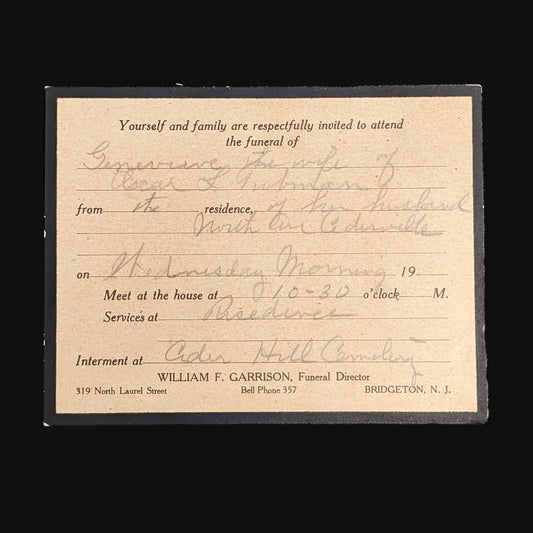 Yourself and family are respectfully invited to attend
the funeral of
Genevieve the wife of
Oscar L Tubman
from the residence, of her husband
North Ave Cedarville
on Wednesday Morning 19
Meet at the house at 10-30 o'clock M.
Services at Risedince
Interment at Ceder Hill Cemetery
WILLIAM F. GARRISON, Funeral Director
319 North Laurel Street Bell Phone 357 BRIDGETON, N. J.